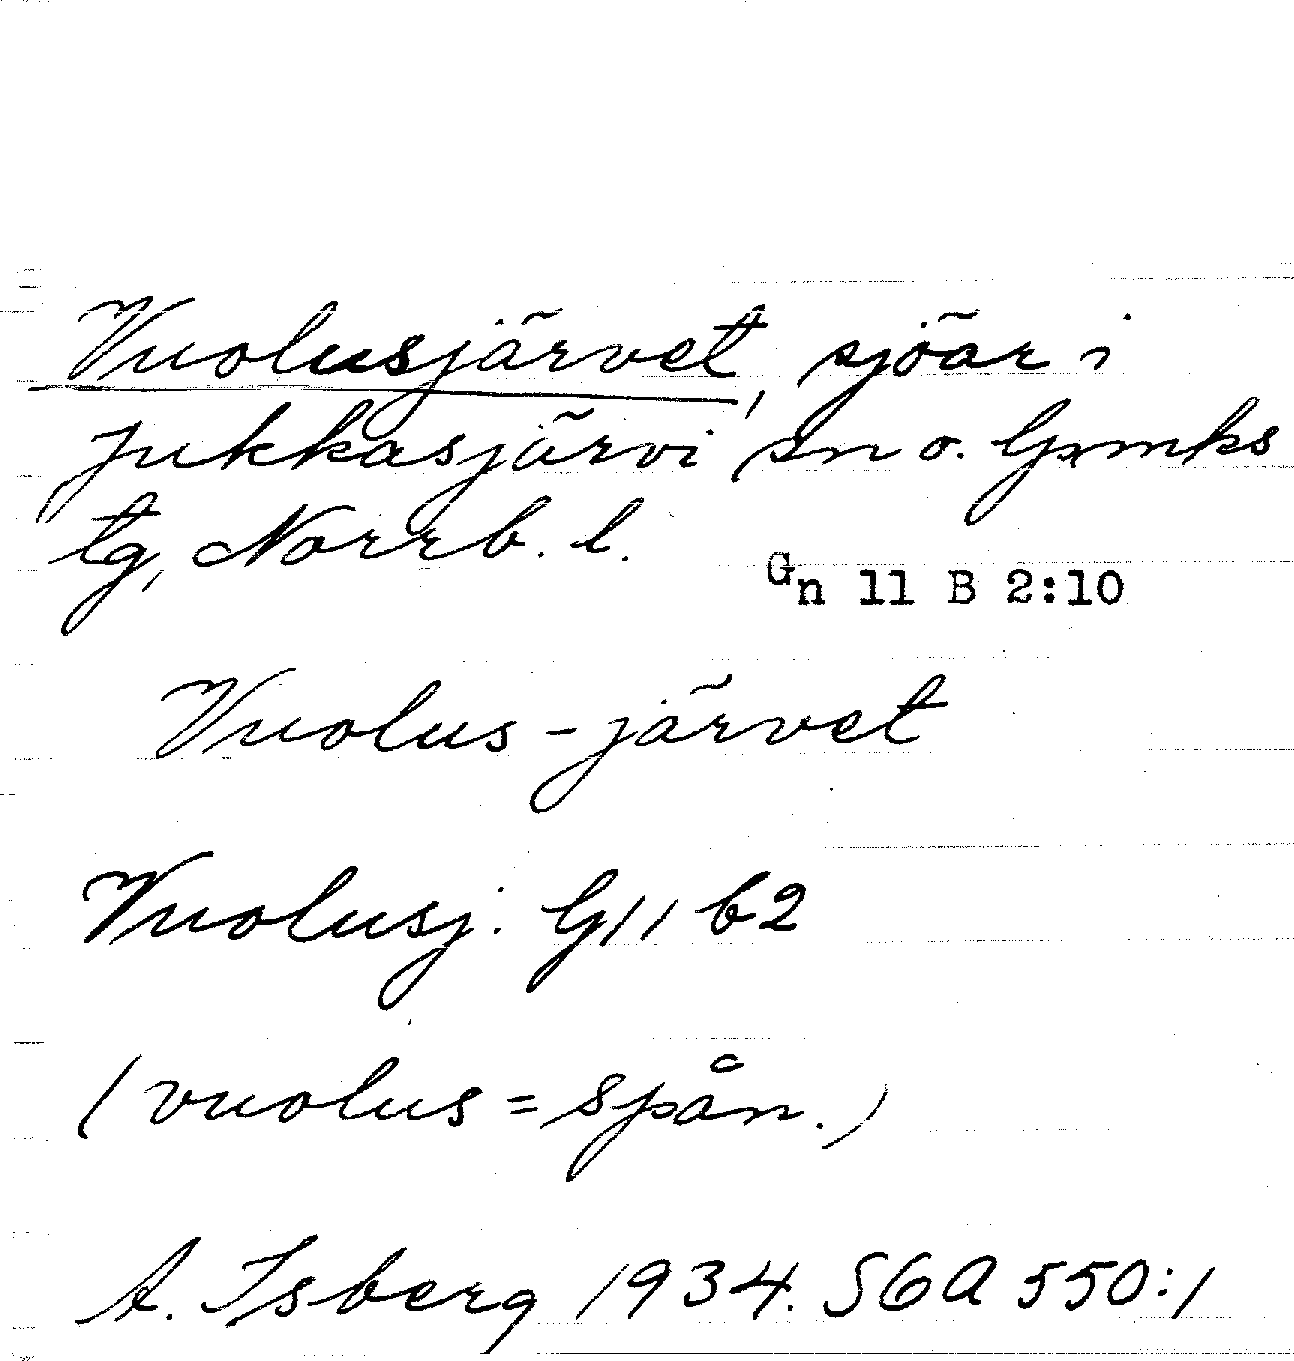 Vuolusjärvet, sjöar i
Jukkasjärvi sn o. Gnmks
tg, Norrb. l.
Gn 11 B 2:10
Vuolus-järvet
Vuolusj. G11 b2
(vuolus = spån.)
A. Isberg 1934. SGA 550:1